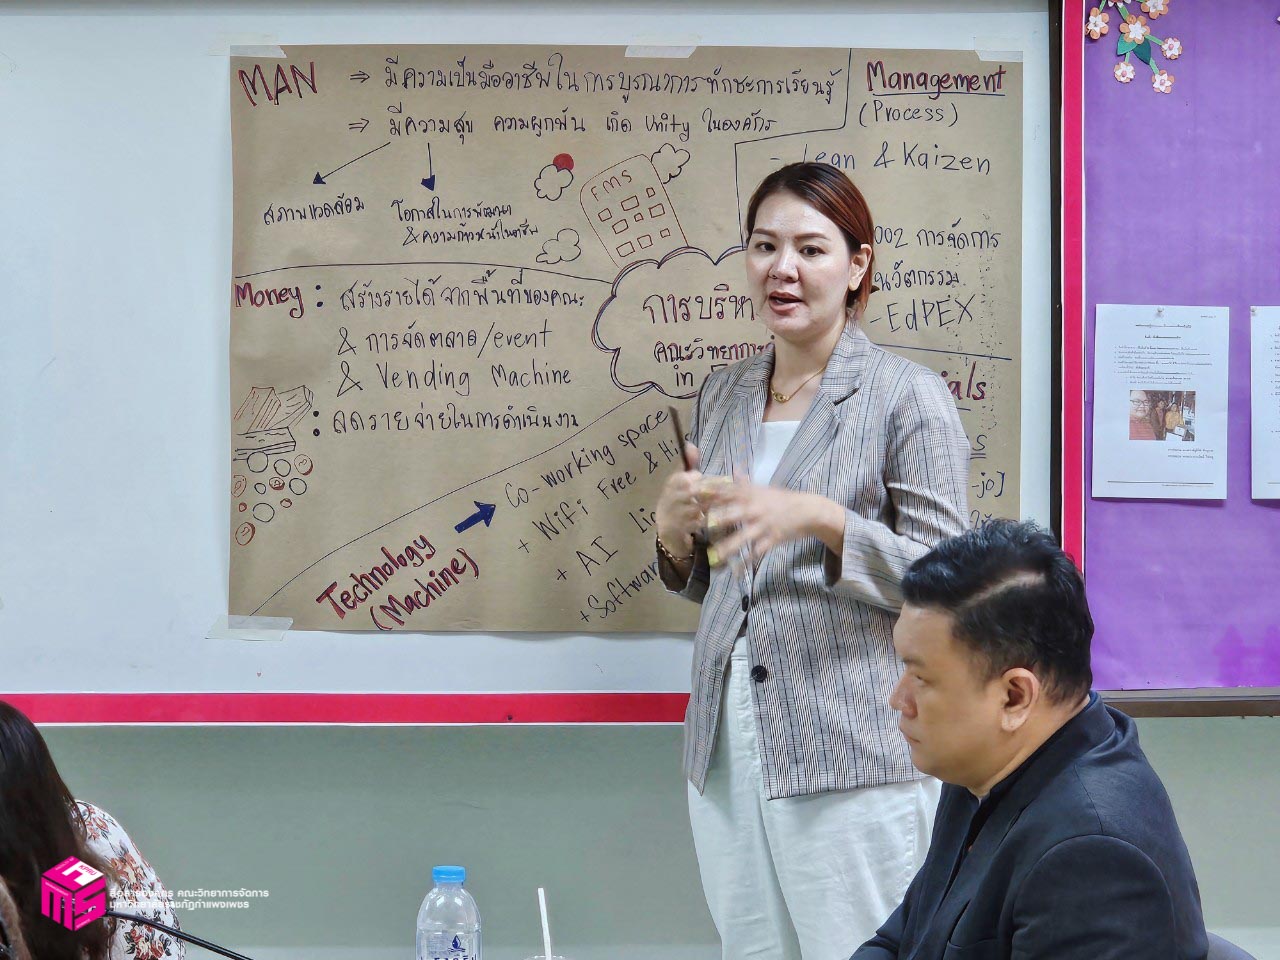 MAN ⇒ มีความเป็นมืออาชีพในการบูรณาการทักษะการเรียนรู้
⇒ มีความสุข ความผูกพัน เกิด Unity ในองค์กร
สภาพแวดล้อม
โอกาสในการพัฒนา
& ความก้าวหน้าในอาชีพ
FMS
Management
(Process)
- Lean & Kaizen
002 การจัดการ
นวัตกรรม
- EdPEX
Money : สร้างรายได้จากพื้นที่ของคณะ
& การจัดตลาด/event
& Vending Machine
: ลดรายจ่ายในการดำเนินงาน
การบริหา
คณะวิทยาการ
in
Technology
(Machine)
Co-working space
+ Wifi Free & Hi
+ AI
+ Software
als
-jo]
สื่อสารองค์กร คณะวิทยาการจัดการ
มหาวิทยาลัยราชภัฏกำแพงเพชร